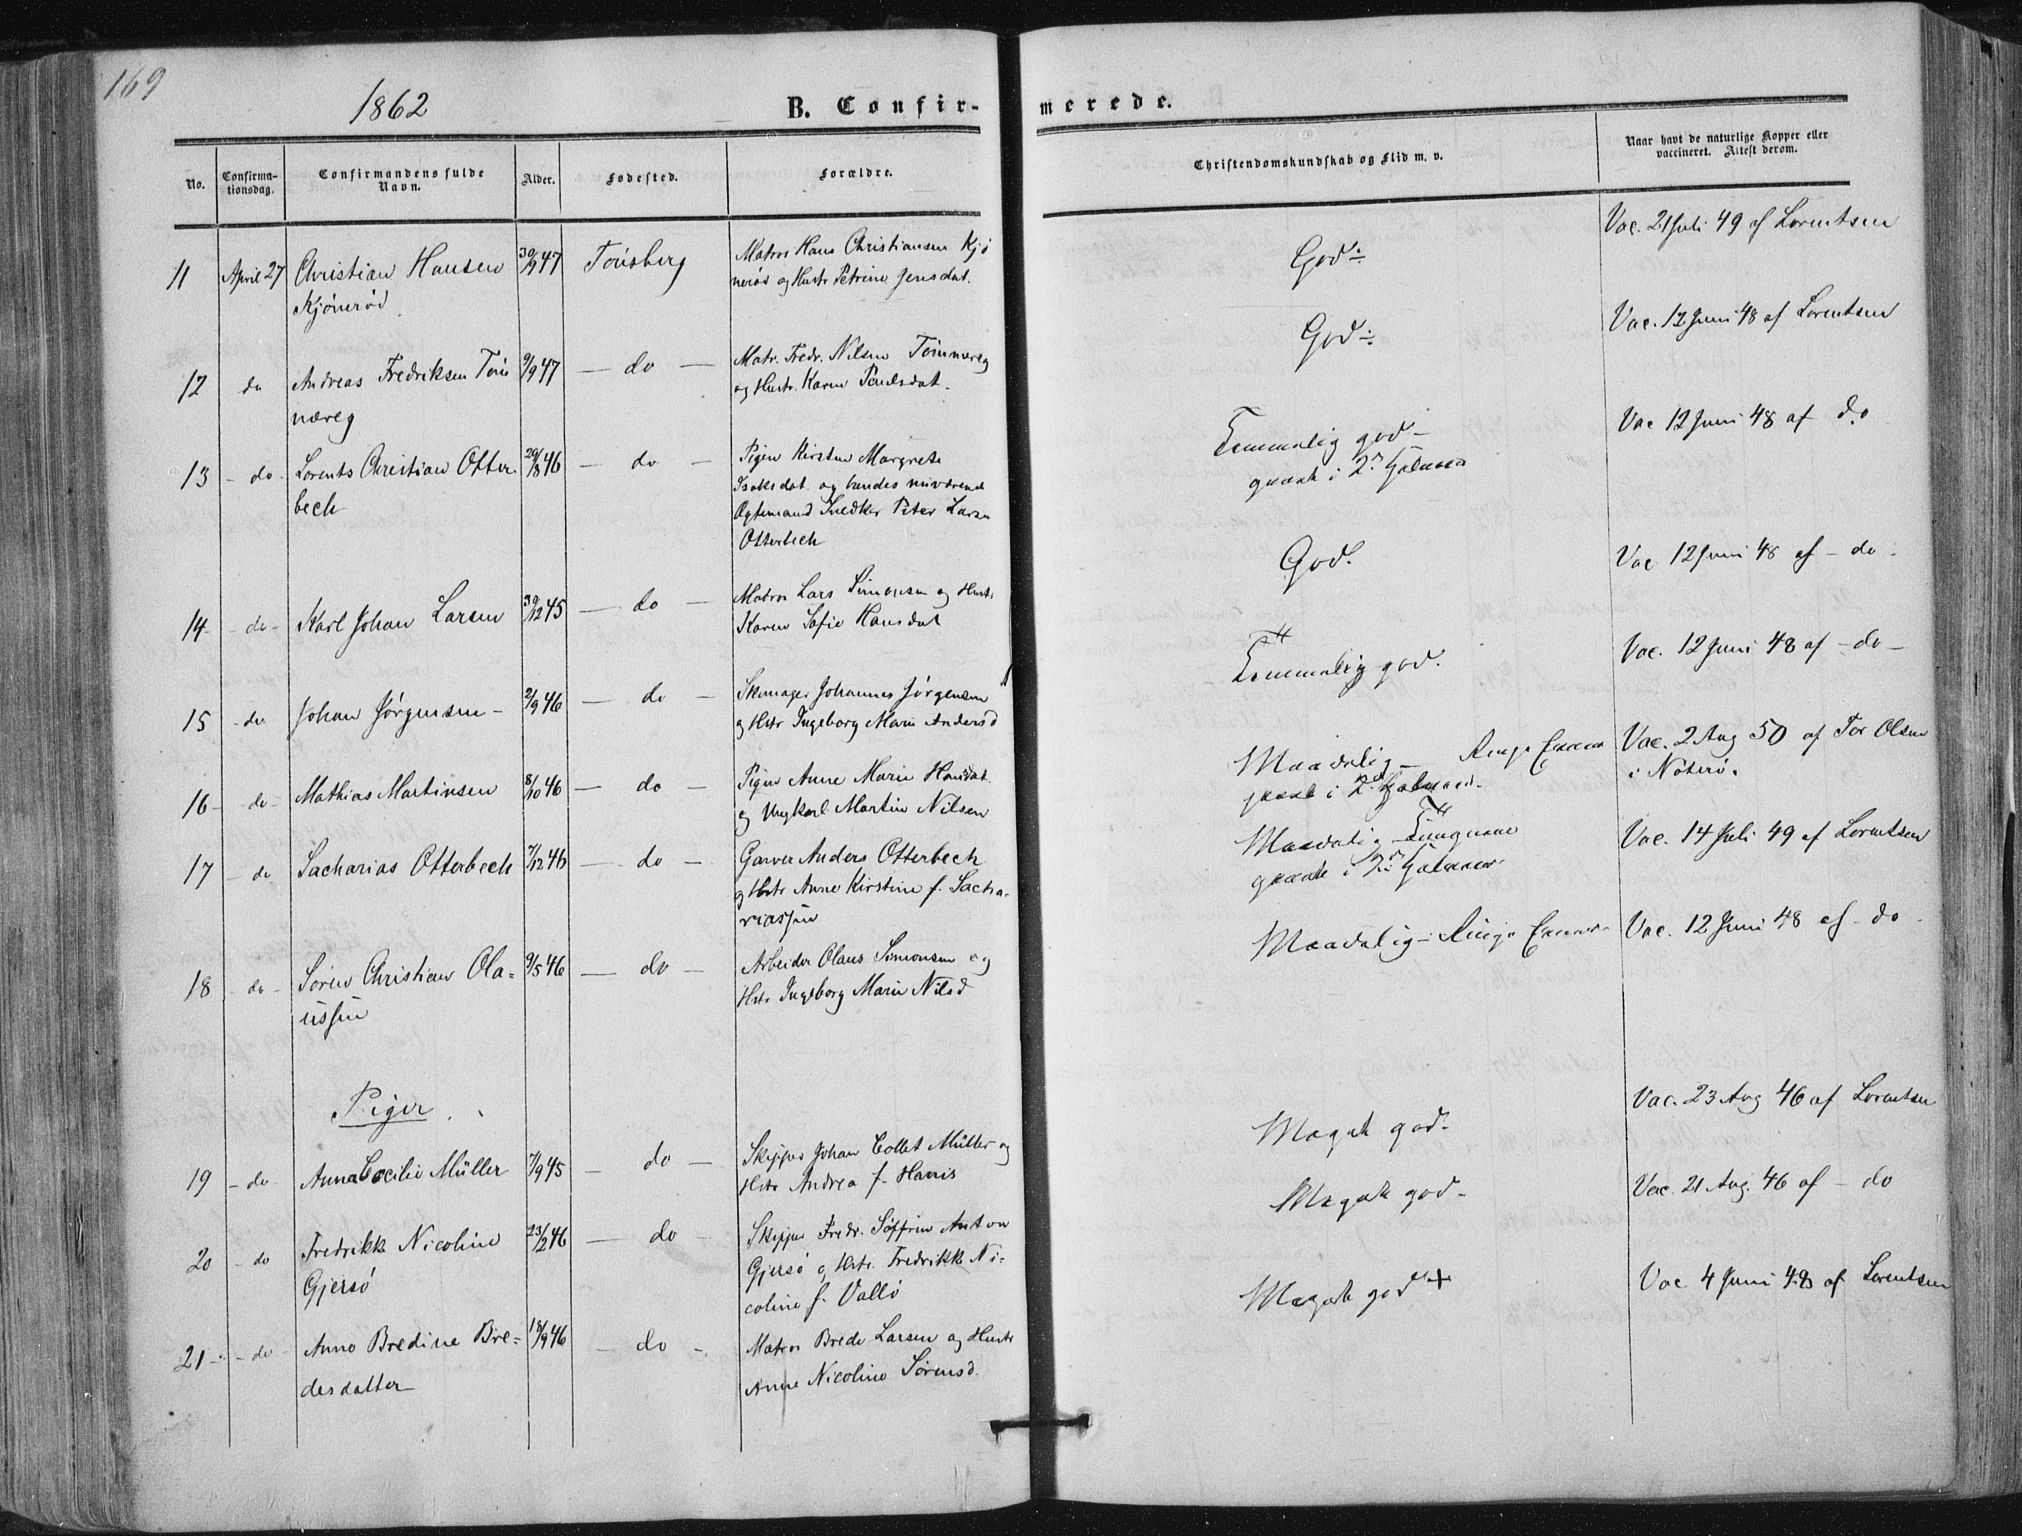 169
1862
B. Confir-
merede.
No.
Confirma-
tionsdag.
Confirmandens fulde
Navn.
Alder.
Fødested.
Forældre.
Christendomskundskab og Flid m. v.
Naar havt de naturlige Kopper eller
vaccineret. Attest derom.
11 April 27 Christian Hansen 30/9 47 Tönsberg Matros Hans Christiansen Kjö God Vac. 21 Juli 49 af Lorentsen
Kjönerød nerød og Hustr Petrine Jensdat.
12 do Andreas Fredriksen Tön 9/9 47 do Matr. Fredr. Nilsen Tönnæreg God Vac. 12 Juni 48 af Lorentsen
næreg og Hustr. Karen Poulsdat.
13 do Lorents Christian Otter 29/8 46 do Pigen Kirsten Margrete Temmelig god Vac 12 Juni 48 af do
bech Isaksdat. og hendes nuværende i 2
Ægtemand Snedker Peter Larsen
Otterbech
14 do Karl Johan Larsen 30/12 45 do Matros Lars Simonsen og Hustr God. Vac 12 Juni 48 af do
Karen Sofie Hansdat
15 do Johan Jørgensen 2/9 46 do Skomager Johannes Jörgensen Temmelig god. Vac. 12 Juni 48 af do
og Hstr Ingeborg Marie Andersd
16 do Mathias Martinsen 8/10 46 do Pigen Anne Marie Hansdat. Maadelig Ringe Vac. 2 Aug 50 af Tor Olsen
og Ungkarl Martin Nilsen i 2 i Nöterö.
17 do Sacharias Otterbech 7/12 46 do Garver Anders Otterbech Maadelig Vac. 14 Juli 49 af Lorentsen
og Hstr Anne Kirstine f. Sacha- i 2
riassen
18 do Sören Christian Ola- 9/5 46 do Arbeider Olaus Simonsen og Maadelig Ringe Vac. 12 Juni 48 af do
ussen Hstr Ingeborg Marie Nilsd
Piger
19 do Anna Cecilie Müller 7/9 45 do Skipper Johan Collet Müller og Meget god Vac. 23 Aug 46 af Lorentsen
Hstr Andrea f. Hanis
20 do Fredrikke Nicoline 23/2 46 do Skipper Fredr. Söffrin Anton Meget god Vac. 21 Aug. 46 af do
Gjersö Gjersö og Hstr. Fredrikke Ni-
coline f. Vallö
21 do Anne Bredine Bre- 18/9 46 do Matros Brede Larsen og Hustr Meget god + Vac 4 Juni 48 af Lorentsen
desdatter Anne Nicoline Sörensd.